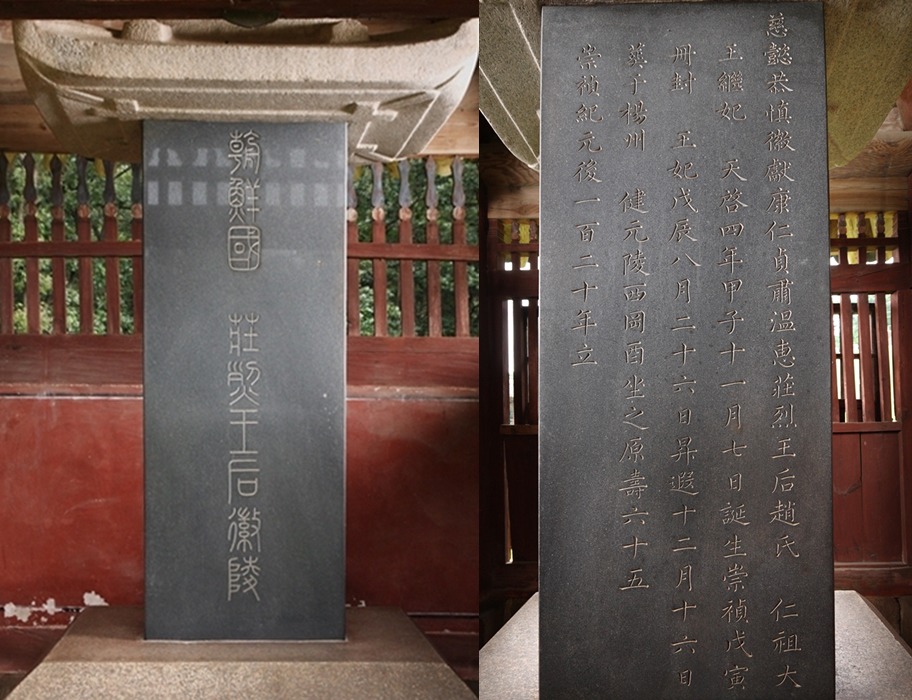 朝鮮國 莊烈王后徽陵
慈懿恭慎徽獻康仁貞肅溫惠莊烈王后趙氏 仁祖大
王繼妃 天啓四年甲子十一月七日誕生崇禎戊寅
冊封 王妃戊辰八月二十六日昇遐十二月十六日
葬于楊州 健元陵西岡酉坐之原壽六十五
崇禎紀元後一百二十年立